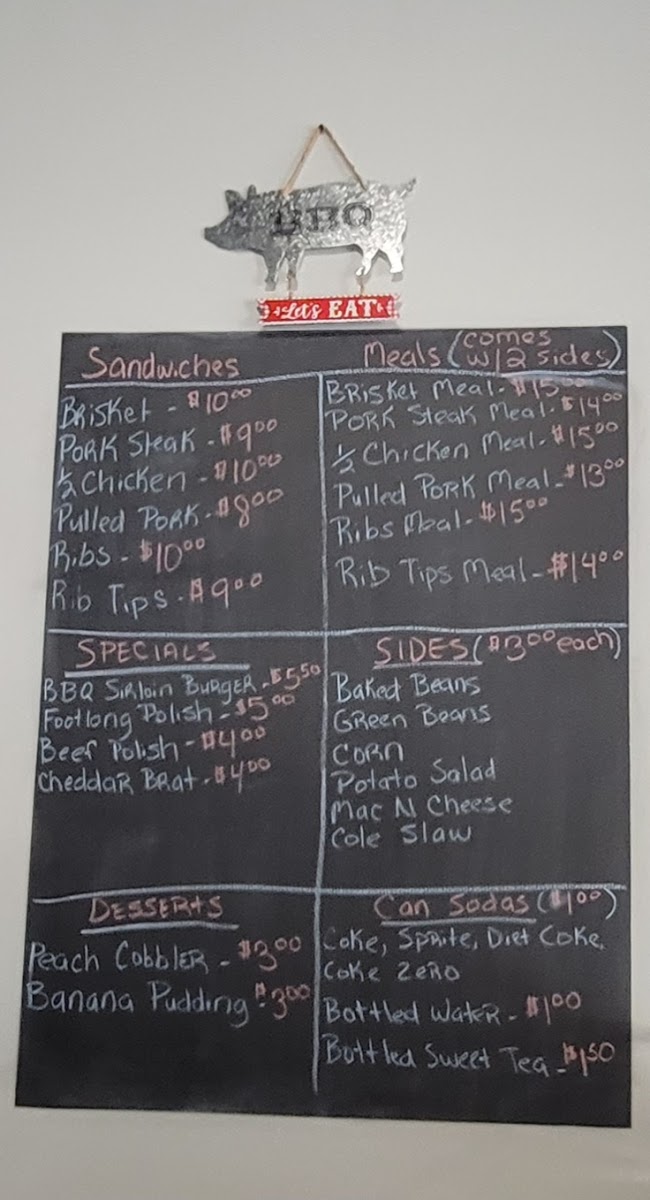 BBQ
Let's EAT
Sandwiches
Brisket - $10.00
Pork Steak - $9.00
1/2 Chicken - $10.00
Pulled Pork - $8.00
Ribs - $10.00
Rib Tips - $9.00
Meals (comes w/2 sides)
Brisket Meal - $15.00
Pork Steak Meal - $14.00
1/2 Chicken Meal - $15.00
Pulled Pork Meal - $13.00
Ribs Meal - $15.00
Rib Tips Meal - $14.00
SPECIALS
BBQ Sirloin Burger - $5.50
Footlong Polish - $5.00
Beef Polish - $4.00
Cheddar Brat - $4.00
SIDES ($3.00 each)
Baked Beans
Green Beans
Corn
Potato Salad
Mac N Cheese
Cole Slaw
DESSERTS
Peach Cobbler - $3.00
Banana Pudding - $3.00
Can Sodas ($1.00)
Coke, Sprite, Diet Coke,
Coke Zero
Bottled Water - $1.00
Bottled Sweet Tea - $1.50